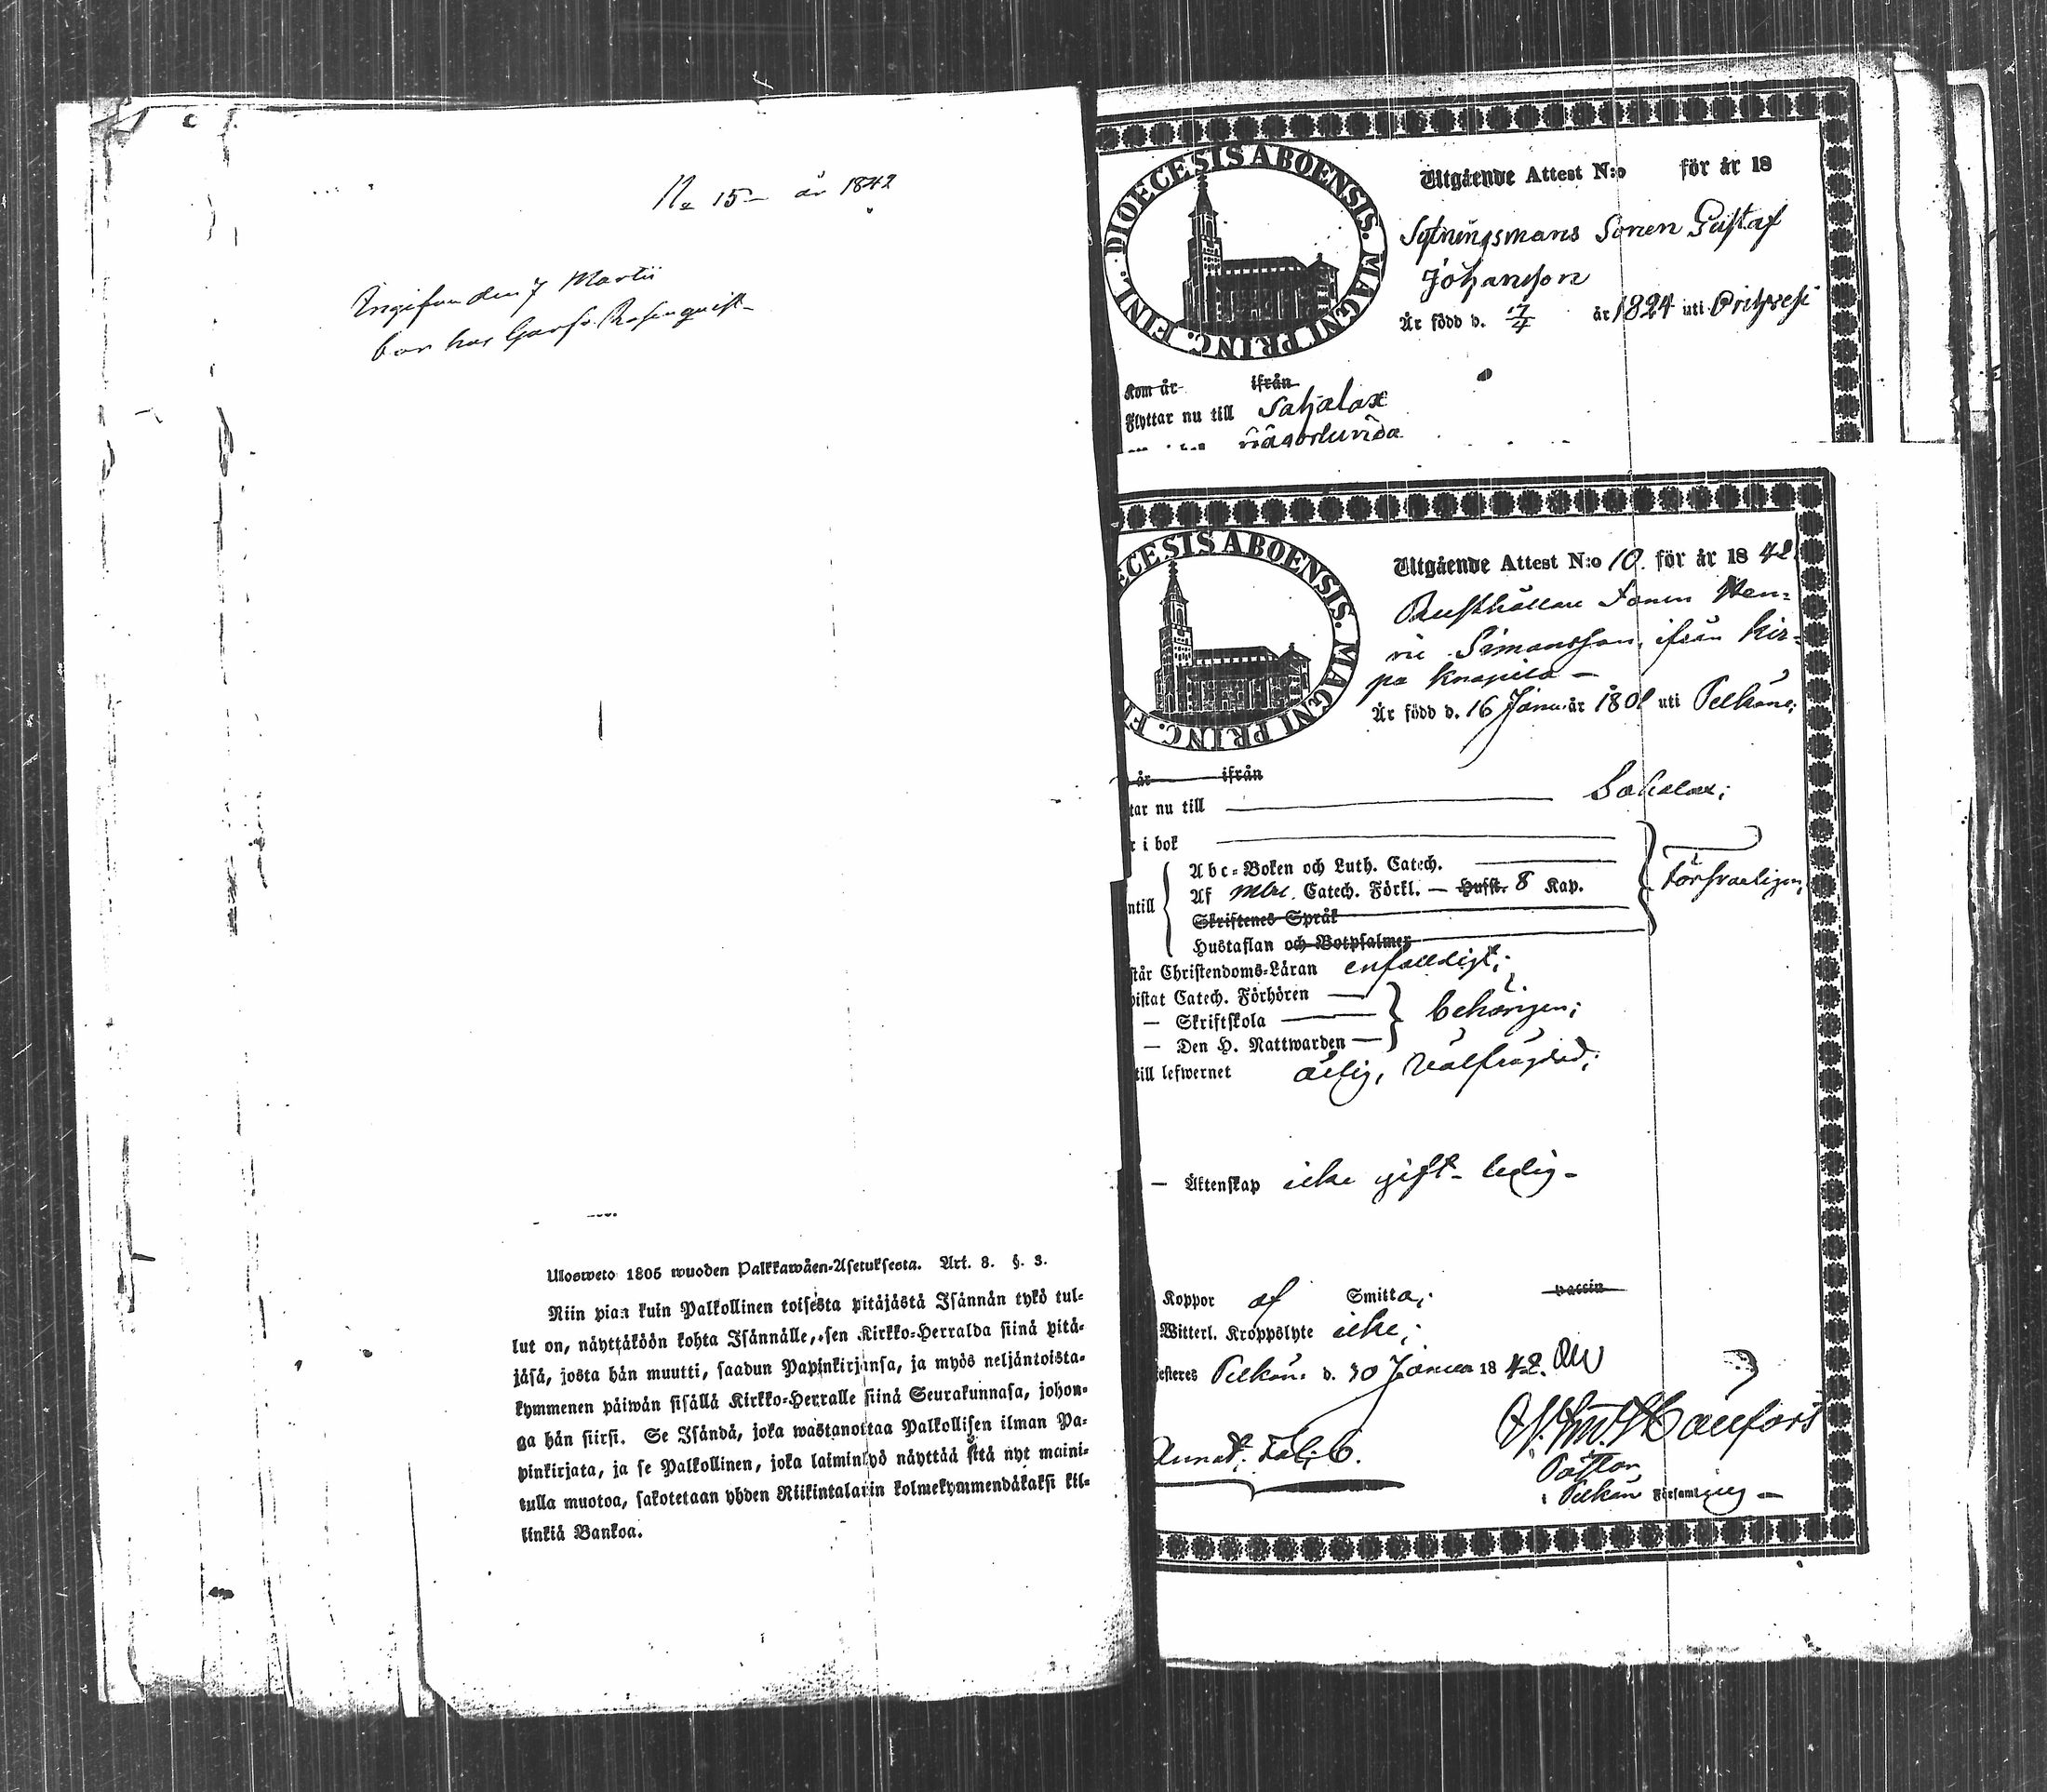 No 15 — år 1842
Ingifven den 7 Martii
bor hos
Ulosweto 1805 wuoden Palkkawåen-Asetuksesta. Art. 8. §. 3.
Niin pian kuin Palkollinen toisesta pitäjästä Isännän tykö tul-
lut on, näyttäköön kohta Isännälle, sen Kirkko-Herralda siinä pitä-
jäsä, josta hän muutti, saadun Papinkirjansa, ja myös neljäntoista-
kymmenen päiwän sisällä Kirkko-Herralle siinä Seurakunnasa, johon-
ga hän siirsi. Se Isändä, joka wastanottaa Palkollisen ilman Pa-
pinkirjata, ja se Palkollinen, joka laiminlyö näyttää sitä nyt maini-
tulla muotoa, sakotetaan yhden Riikintalarin kolmekymmendäkaksi kil-
linkiä Bankoa.
DIOECESIS ABOENSIS. MAGNI PRINC. FINL.
Utgående Attest N:o för år 18
Sytningsmans Sonen Gustaf
Johansson
Är född d. 17/4 år 1824 uti Orihvesi
Kom år ifrån
Flyttar nu till Sahalax
någorlunda
ECESIS ABOENSIS. MAGNI PRINC. FI
Utgående Attest N:o 10. för år 1842.
Rusthållare Sonen Hen-
ric Simonsson, ifrån Kir-
pa Knapila —
Är född d. 16 Janu. år 1801 uti Pelkäne;
år ifrån
tar nu till Sahalax;
r i bok
Abc-Boken och Luth. Catech.
Af mbre. Catech. Förkl. — Husst. 8 Kap. Försvarligen,
ntill
Skriftenes Språk
Hustaflan och Botpsalmer
står Christendoms-Läran enfaldigt;
bistat Catech. Förhören
— Skriftskola behörigen;
— Den H. Nattwarden
till lefwernet ärlig, välfrägdad;
— Äktenskap icke gift - ledig -
Koppor af Smitta; vaccin
Witterl. Kroppslyte icke;
testeres Pelkäne d. 30 Januari 1842.
Pastor
i Pelkäne Församling —